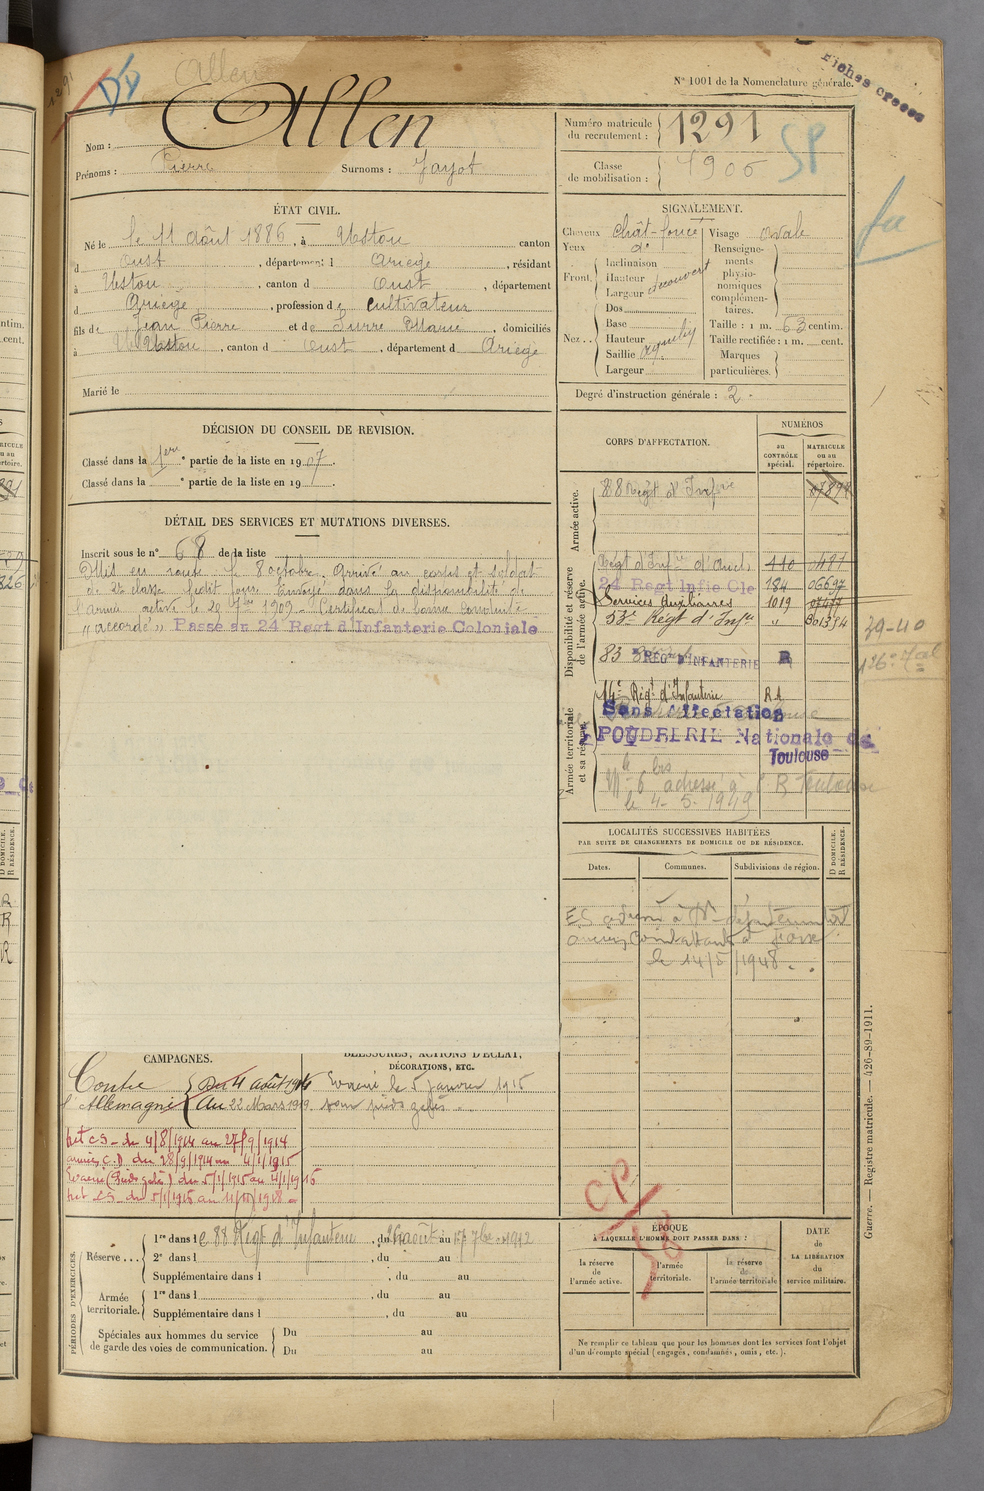 Allen
N° 1001 de la Nomenclature générale.
Fiches créées
Nom : Allen
Prénoms : Pierre Surnoms : Jayot
Numéro matricule du recrutement : 1291
SP
Classe de mobilisation : 1906
ÉTAT CIVIL.
Né le 11 août 1886, à Ustou canton
d Oust, département d Ariège, résidant
à Ustou, canton d Oust, département
d Ariège, profession de cultivateur
fils de Jean Pierre et de Marie, domiciliés
à Ustou, canton d Oust, département d Ariège
Marié le
SIGNALEMENT.
Cheveux chât-foncé
Yeux d°
Front. Inclinaison
Hauteur
Largeur découvert
Nez. Dos
Base
Hauteur
Saillie
Largeur
Visage ovale
Renseignements physionomiques complémentaires.
Taille : 1 m. 63 centim.
Taille rectifiée : 1 m. cent.
Marques particulières.
Degré d'instruction générale : 2.
DÉCISION DU CONSEIL DE RÉVISION.
Classé dans la 1ère partie de la liste en 1907.
Classé dans la ° partie de la liste en 19 .
DÉTAIL DES SERVICES ET MUTATIONS DIVERSES.
Inscrit sous le n° 68 de la liste
Mis en route le 8 octobre. Arrivé au corps et soldat
de 2e classe ledit jour. Envoyé dans la disponibilité de
l'armée active le 1909. Certificat de bonne conduite
"accordé" Passé au 24 Regt d'Infanterie Coloniale
CORPS D'AFFECTATION.
NUMÉROS
au CONTRÔLE spécial.
MATRICULE ou au répertoire.
Armée active.
88 Régt d'Infrie
Disponibilité et réserve de l'armée active.
Régt d'Infie 110
24 Regt Infie Cle 184
Services Auxiliaires 1019
53e Régt d'Infie "
39-40
83 REG D'INFANTERIE R
Armée territoriale et sa réserve.
14e Régt d'Infanterie
Sans affectation
POUDRERIE Nationale de
Toulouse
le 4-5-1949
LOCALITÉS SUCCESSIVES HABITÉES
PAR SUITE DE CHANGEMENTS DE DOMICILE OU DE RÉSIDENCE.
Dates. Communes. Subdivisions de région.
D DOMICILE.
R RÉSIDENCE.
ES adressé à
le 14/5/1948.
CAMPAGNES.
Contre l'Allemagne
Du 4 août 1914
Au 22 Mars 1919.
int CS - du 4/8/1914 au 27/9/1914
armées C.D du 28/9/1914 au 4/1/1915
Evacué (Pieds gelés) du 5/1/1915 au 4/1/1916
int CS du 5/1/1916 au 11/11/1918
BLESSURES, ACTIONS D'ÉCLAT,
DÉCORATIONS, ETC.
Evacué le 5 janvier 1915
pour pieds gelés.
CP
PÉRIODES D'EXERCICES.
Réserve...
1re dans le 88 Régt d'Infanterie, du août au 7bre 1912
2e dans l , du au
Supplémentaire dans l , du au
Armée territoriale.
1re dans l , du au
Supplémentaire dans l , du au
Spéciales aux hommes du service de garde des voies de communication.
Du au
Du au
ÉPOQUE
À LAQUELLE L'HOMME DOIT PASSER DANS :
la réserve de l'armée active.
l'armée territoriale.
la réserve de l'armée territoriale
DATE de LA LIBÉRATION du service militaire.
Ne remplir ce tableau que pour les hommes dont les services font l'objet
d'un décompte spécial (engagés, condamnés, omis, etc.).
Guerre. — Registre matricule. — 426-89-1911.